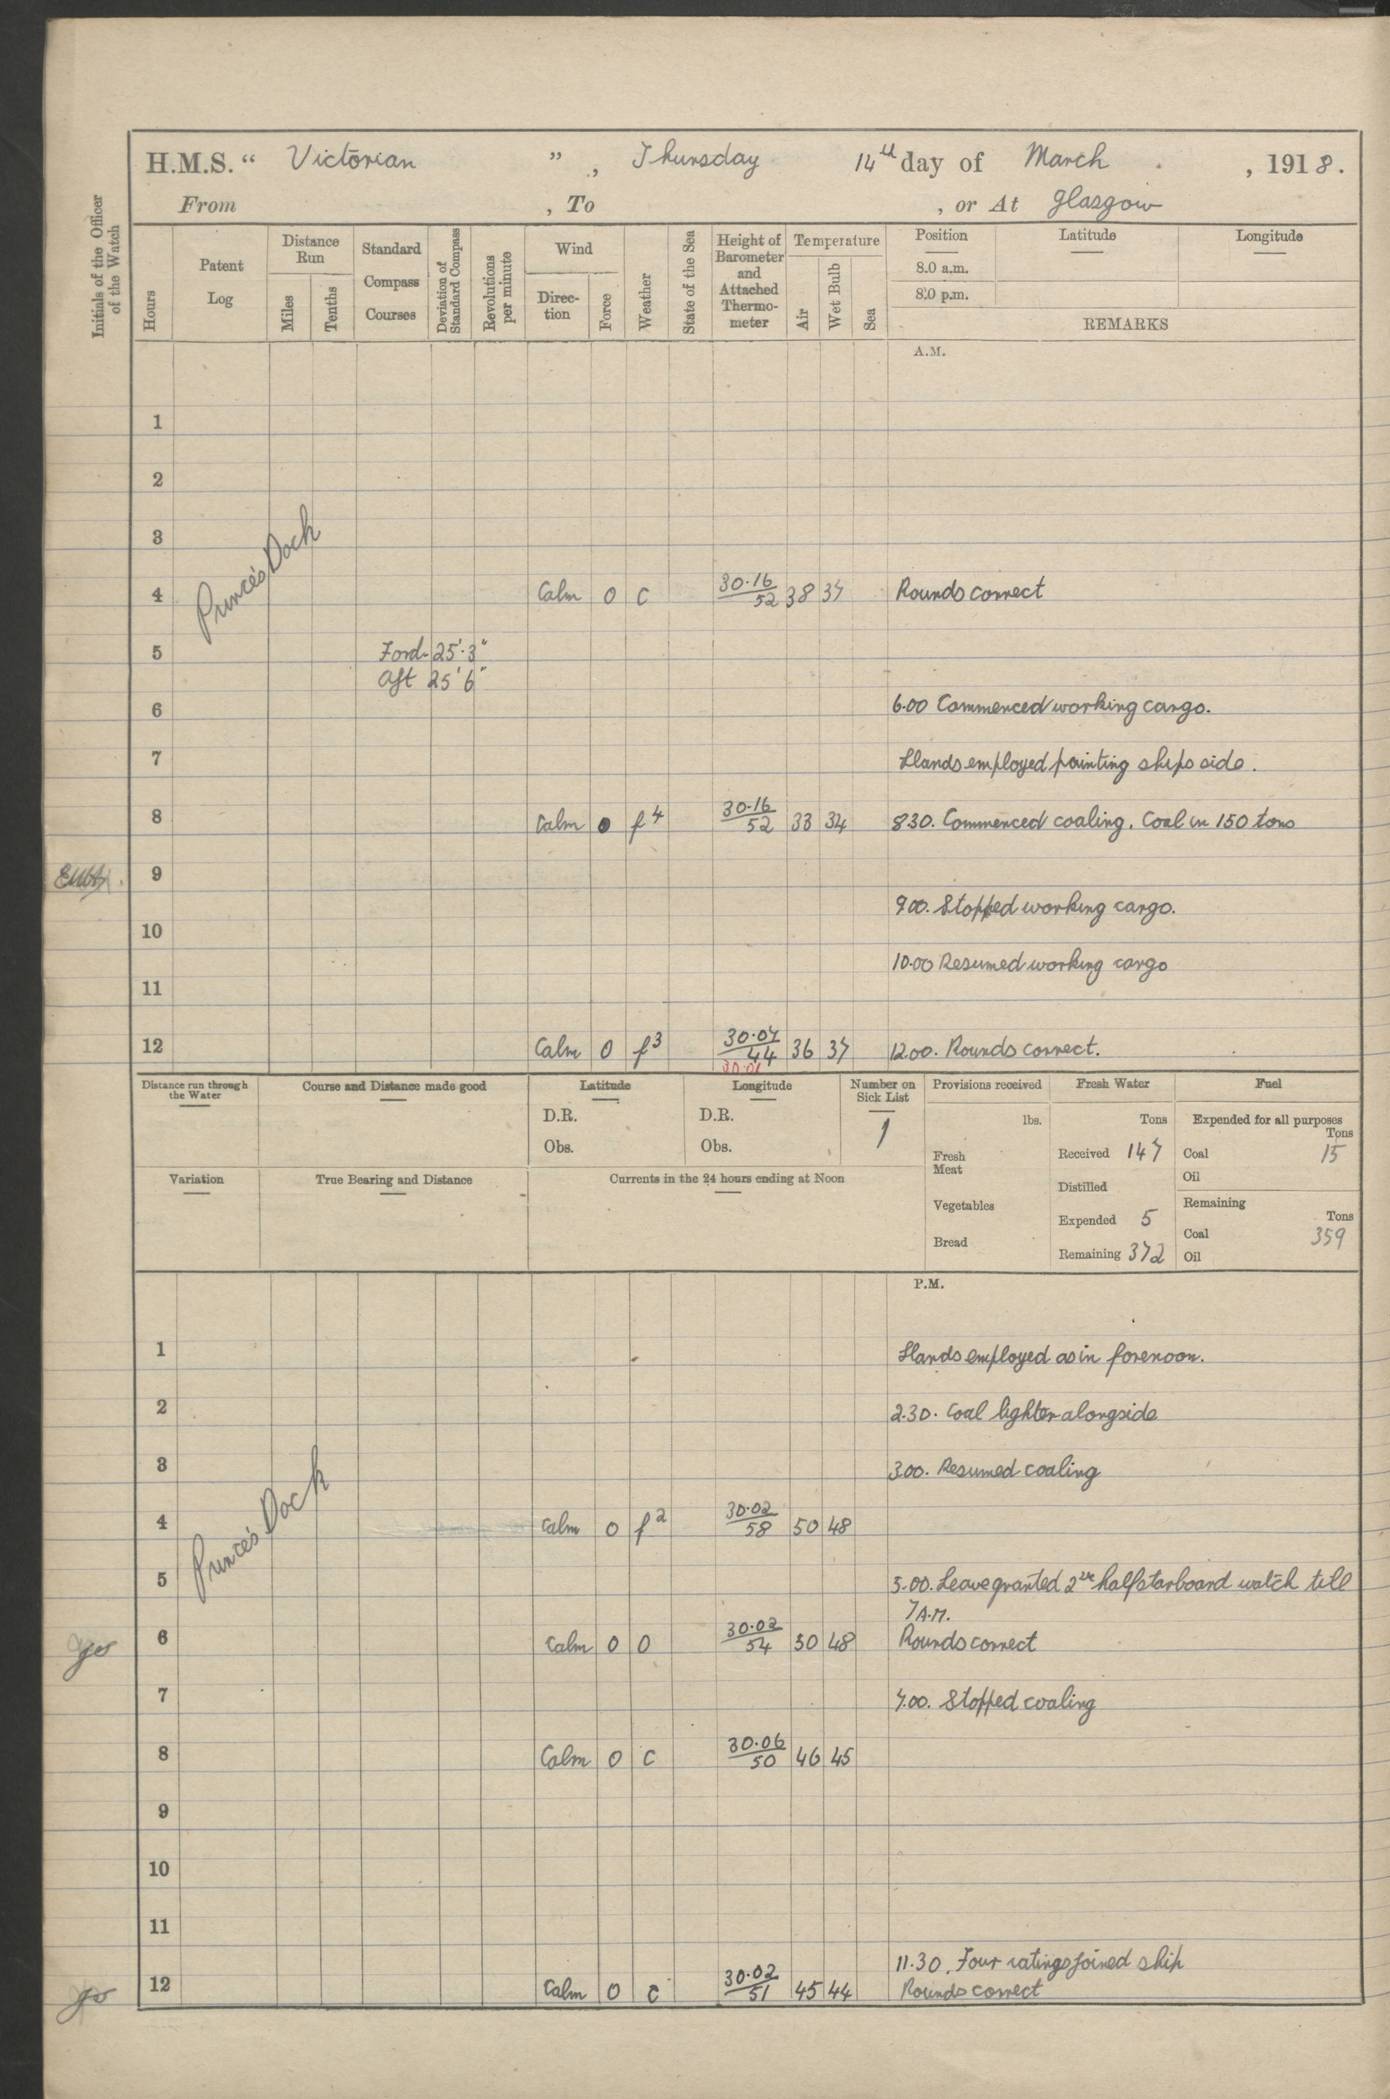 H.M.S. " Victorian ", Thursday 14th day of March, 1918.
From , To , or At Glasgow
Initials of the Officer of the Watch
Hours
Patent Log
Distance Run
Miles
Tenths
Standard Compass Courses
Deviation of Standard Compass
Revolutions per minute
Wind
Direction
Force
Weather
State of the Sea
Height of Barometer and Attached Thermometer
Temperature
Air
Wet Bulb
Sea
Position
Latitude
Longitude
8.0 a.m.
8.0 p.m.
REMARKS
A.M.
1
2
3
Prince's Dock
4 Calm 0 c 30.16/52 38 37 Rounds correct
5 Ford. 25'.3"
Aft 25'6"
6 6.00 Commenced working cargo.
7 Hands employed painting ships side.
8 Calm 0 f4 30.16/52 33 34 8.30. Commenced coaling. Coal in 150 tons
9
9.00. Stopped working cargo.
10
10.00 Resumed working cargo
11
12 Calm 0 f3 30.07/44 36 37 12.00. Rounds correct.
30.01
Distance run through the Water
Course and Distance made good
Latitude
D.R.
Obs.
Longitude
D.R.
Obs.
Number on Sick List
1
Provisions received
lbs.
Fresh Meat
Vegetables
Bread
Fresh Water
Tons
Received 147
Distilled
Expended 5
Remaining 372
Fuel
Expended for all purposes
Tons
Coal 15
Oil
Remaining
Tons
Coal 359
Oil
Variation
True Bearing and Distance
Currents in the 24 hours ending at Noon
P.M.
1 Hands employed as in forenoon.
2 2.30. Coal lighter alongside
3 3.00. Resumed coaling
Prince's Dock
4 Calm 0 f2 30.02/58 50 48
5 5.00. Leave granted 2nd half starboard watch till
7 A.M.
6 Calm 0 0 30.02/54 50 48 Rounds correct
7 7.00. Stopped coaling
8 Calm 0 c 30.06/50 46 45
9
10
11
11.30. Four ratings joined ship
12 Calm 0 c 30.02/51 45 44 Rounds correct